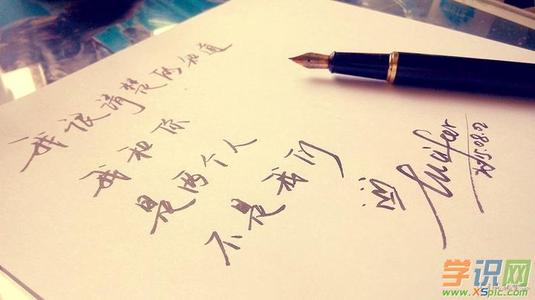 我很清楚的知道
我和你
是两个人
不是我们
Lucifer
学识网
www.XSpic.com